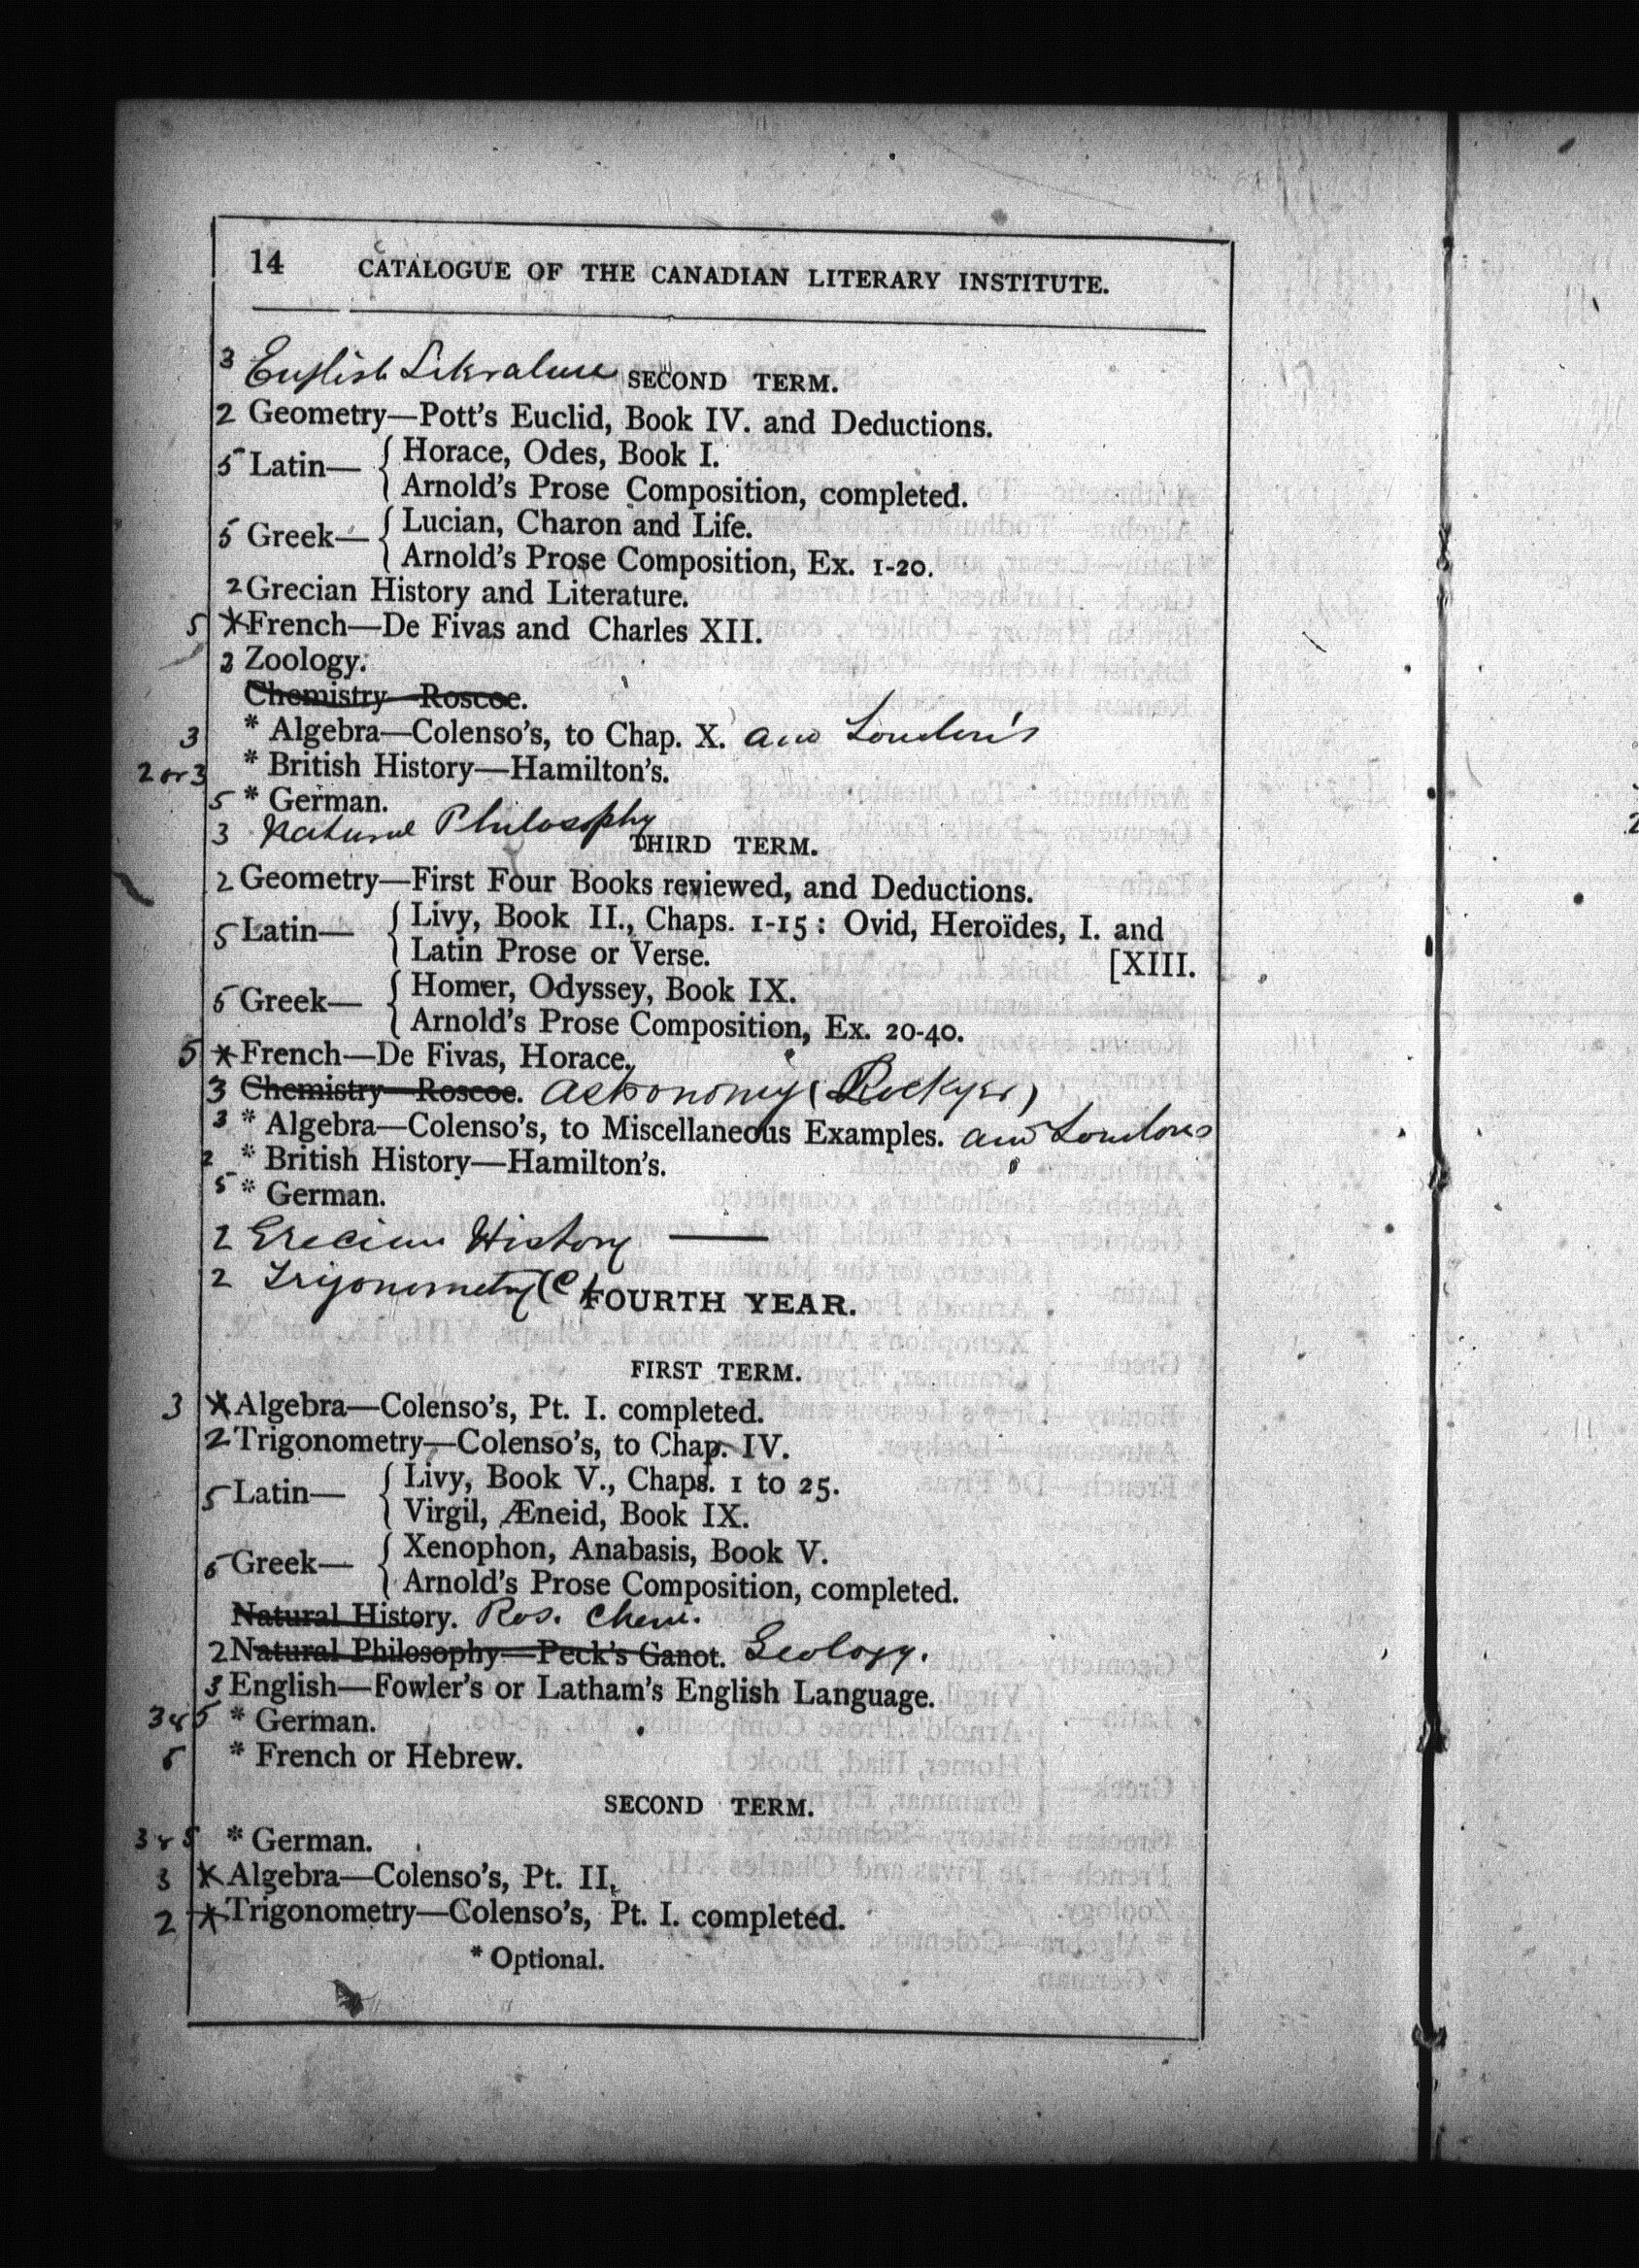 14 CATALOGUE OF THE CANADIAN LITERARY INSTITUTE.
3 English Literature
SECOND TERM.
2 Geometry—Pott's Euclid, Book IV. and Deductions.
5 Latin— { Horace, Odes, Book I.
Arnold's Prose Composition, completed.
5 Greek— { Lucian, Charon and Life.
Arnold's Prose Composition, Ex. 1-20.
2 Grecian History and Literature.
5 * French—De Fivas and Charles XII.
2 Zoology.
Chemistry—Roscoe.
3 * Algebra—Colenso's, to Chap. X. and Loudon's
2 or 3 * British History—Hamilton's.
5 * German.
3 Natural Philosophy
THIRD TERM.
2 Geometry—First Four Books reviewed, and Deductions.
5 Latin— { Livy, Book II., Chaps. 1-15: Ovid, Heroïdes, I. and
Latin Prose or Verse. [XIII.
5 Greek— { Homer, Odyssey, Book IX.
Arnold's Prose Composition, Ex. 20-40.
5 * French—De Fivas, Horace.
3 Chemistry—Roscoe. Astronomy (Lockyer)
3 * Algebra—Colenso's, to Miscellaneous Examples. and Loudons
2 * British History—Hamilton's.
5 * German.
2 Grecian History
2 Trigonometry (C)
FOURTH YEAR.
FIRST TERM.
3 * Algebra—Colenso's, Pt. I. completed.
2 Trigonometry—Colenso's, to Chap. IV.
5 Latin— { Livy, Book V., Chaps. 1 to 25.
Virgil, Æneid, Book IX.
5 Greek— { Xenophon, Anabasis, Book V.
Arnold's Prose Composition, completed.
Natural History. Ros. Chem.
2 Natural Philosophy—Peck's Ganot. Geology.
3 English—Fowler's or Latham's English Language.
3 & 5 * German.
5 * French or Hebrew.
SECOND TERM.
3 & 5 * German.
3 * Algebra—Colenso's, Pt. II.
2 * Trigonometry—Colenso's, Pt. I. completed.
* Optional.